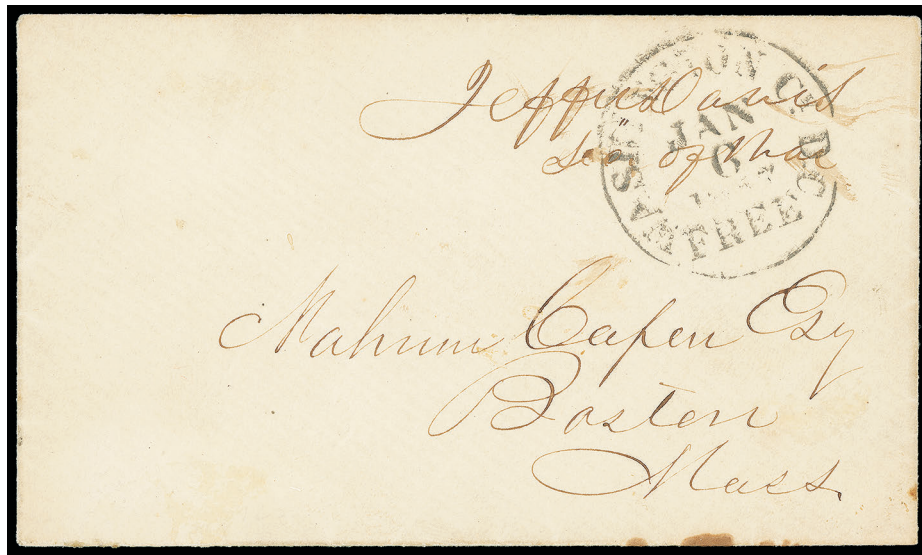 Jeffer Davis
Sec of War
WASHINGTON CY. D.C.
JAN
6
FREE
Nahum Capen Esq
Boston
Mass.